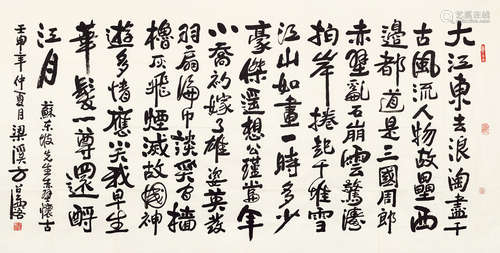 大江東去浪淘盡千
古風流人物故壘西
邊都道是三國周郎
赤壁亂石崩雲驚濤
拍岸捲起千堆雪
江山如畫一時多少
豪傑遥想公瑾當年
小喬初嫁了雄姿英發
羽扇綸巾談笑間檣
櫓灰飛煙滅故國神
遊多情應笑我早生
華髮一尊還酹
江月
蘇東坡先生赤壁懷古
壬申年仲夏月梁溪方召麐